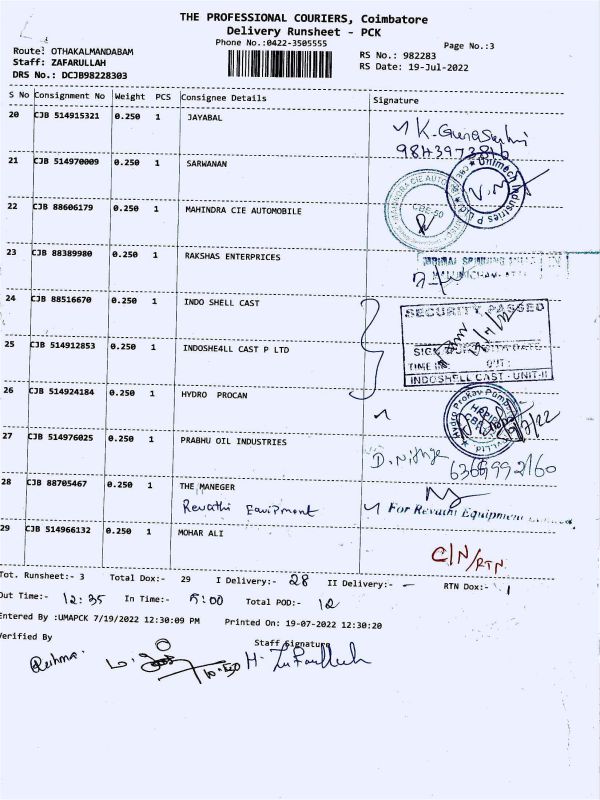 THE PROFESSIONAL COURIERS, Coimbatore
Delivery Runsheet - PCK
Phone No.:0422-3505555
Page No.:3
Route: OTHAKALMANDABAM
RS No.: 982283
Staff: ZAFARULLAH
RS Date: 19-Jul-2022
DRS No.: DCJB98228303
S No Consignment No Weight PCS Consignee Details Signature
20 CJB 514915321 0.250 1 JAYABAL
21 CJB 514970009 0.250 1 SARWANAN
Unimech Industries P Ltd
22 CJB 88606179 0.250 1 MAHINDRA CIE AUTOMOBILE
CBE-50
23 CJB 88389980 0.250 1 RAKSHAS ENTERPRICES
24 CJB 88516670 0.250 1 INDO SHELL CAST
SECURITY PASSED
25 CJB 514912853 0.250 1 INDOSHE4LL CAST P LTD
TIME IN OUT:
INDOSHELL CAST - UNIT-II
26 CJB 514924184 0.250 1 HYDRO PROCAN
27 CJB 514976025 0.250 1 PRABHU OIL INDUSTRIES
28 CJB 88705467 0.250 1 THE MANEGER
Revathi Equipment
For Revathi Equipment Limited.
29 CJB 514966132 0.250 1 MOHAR ALI
C/N/RTN
Tot. Runsheet:- 3 Total Dox:- 29 I Delivery:- 28 II Delivery:- - RTN Dox:- 1
Out Time:- 12:35 In Time:- 5:00 Total POD:- 12
Entered By :UMAPCK 7/19/2022 12:30:09 PM Printed On: 19-07-2022 12:30:20
Verified By Staff Signature